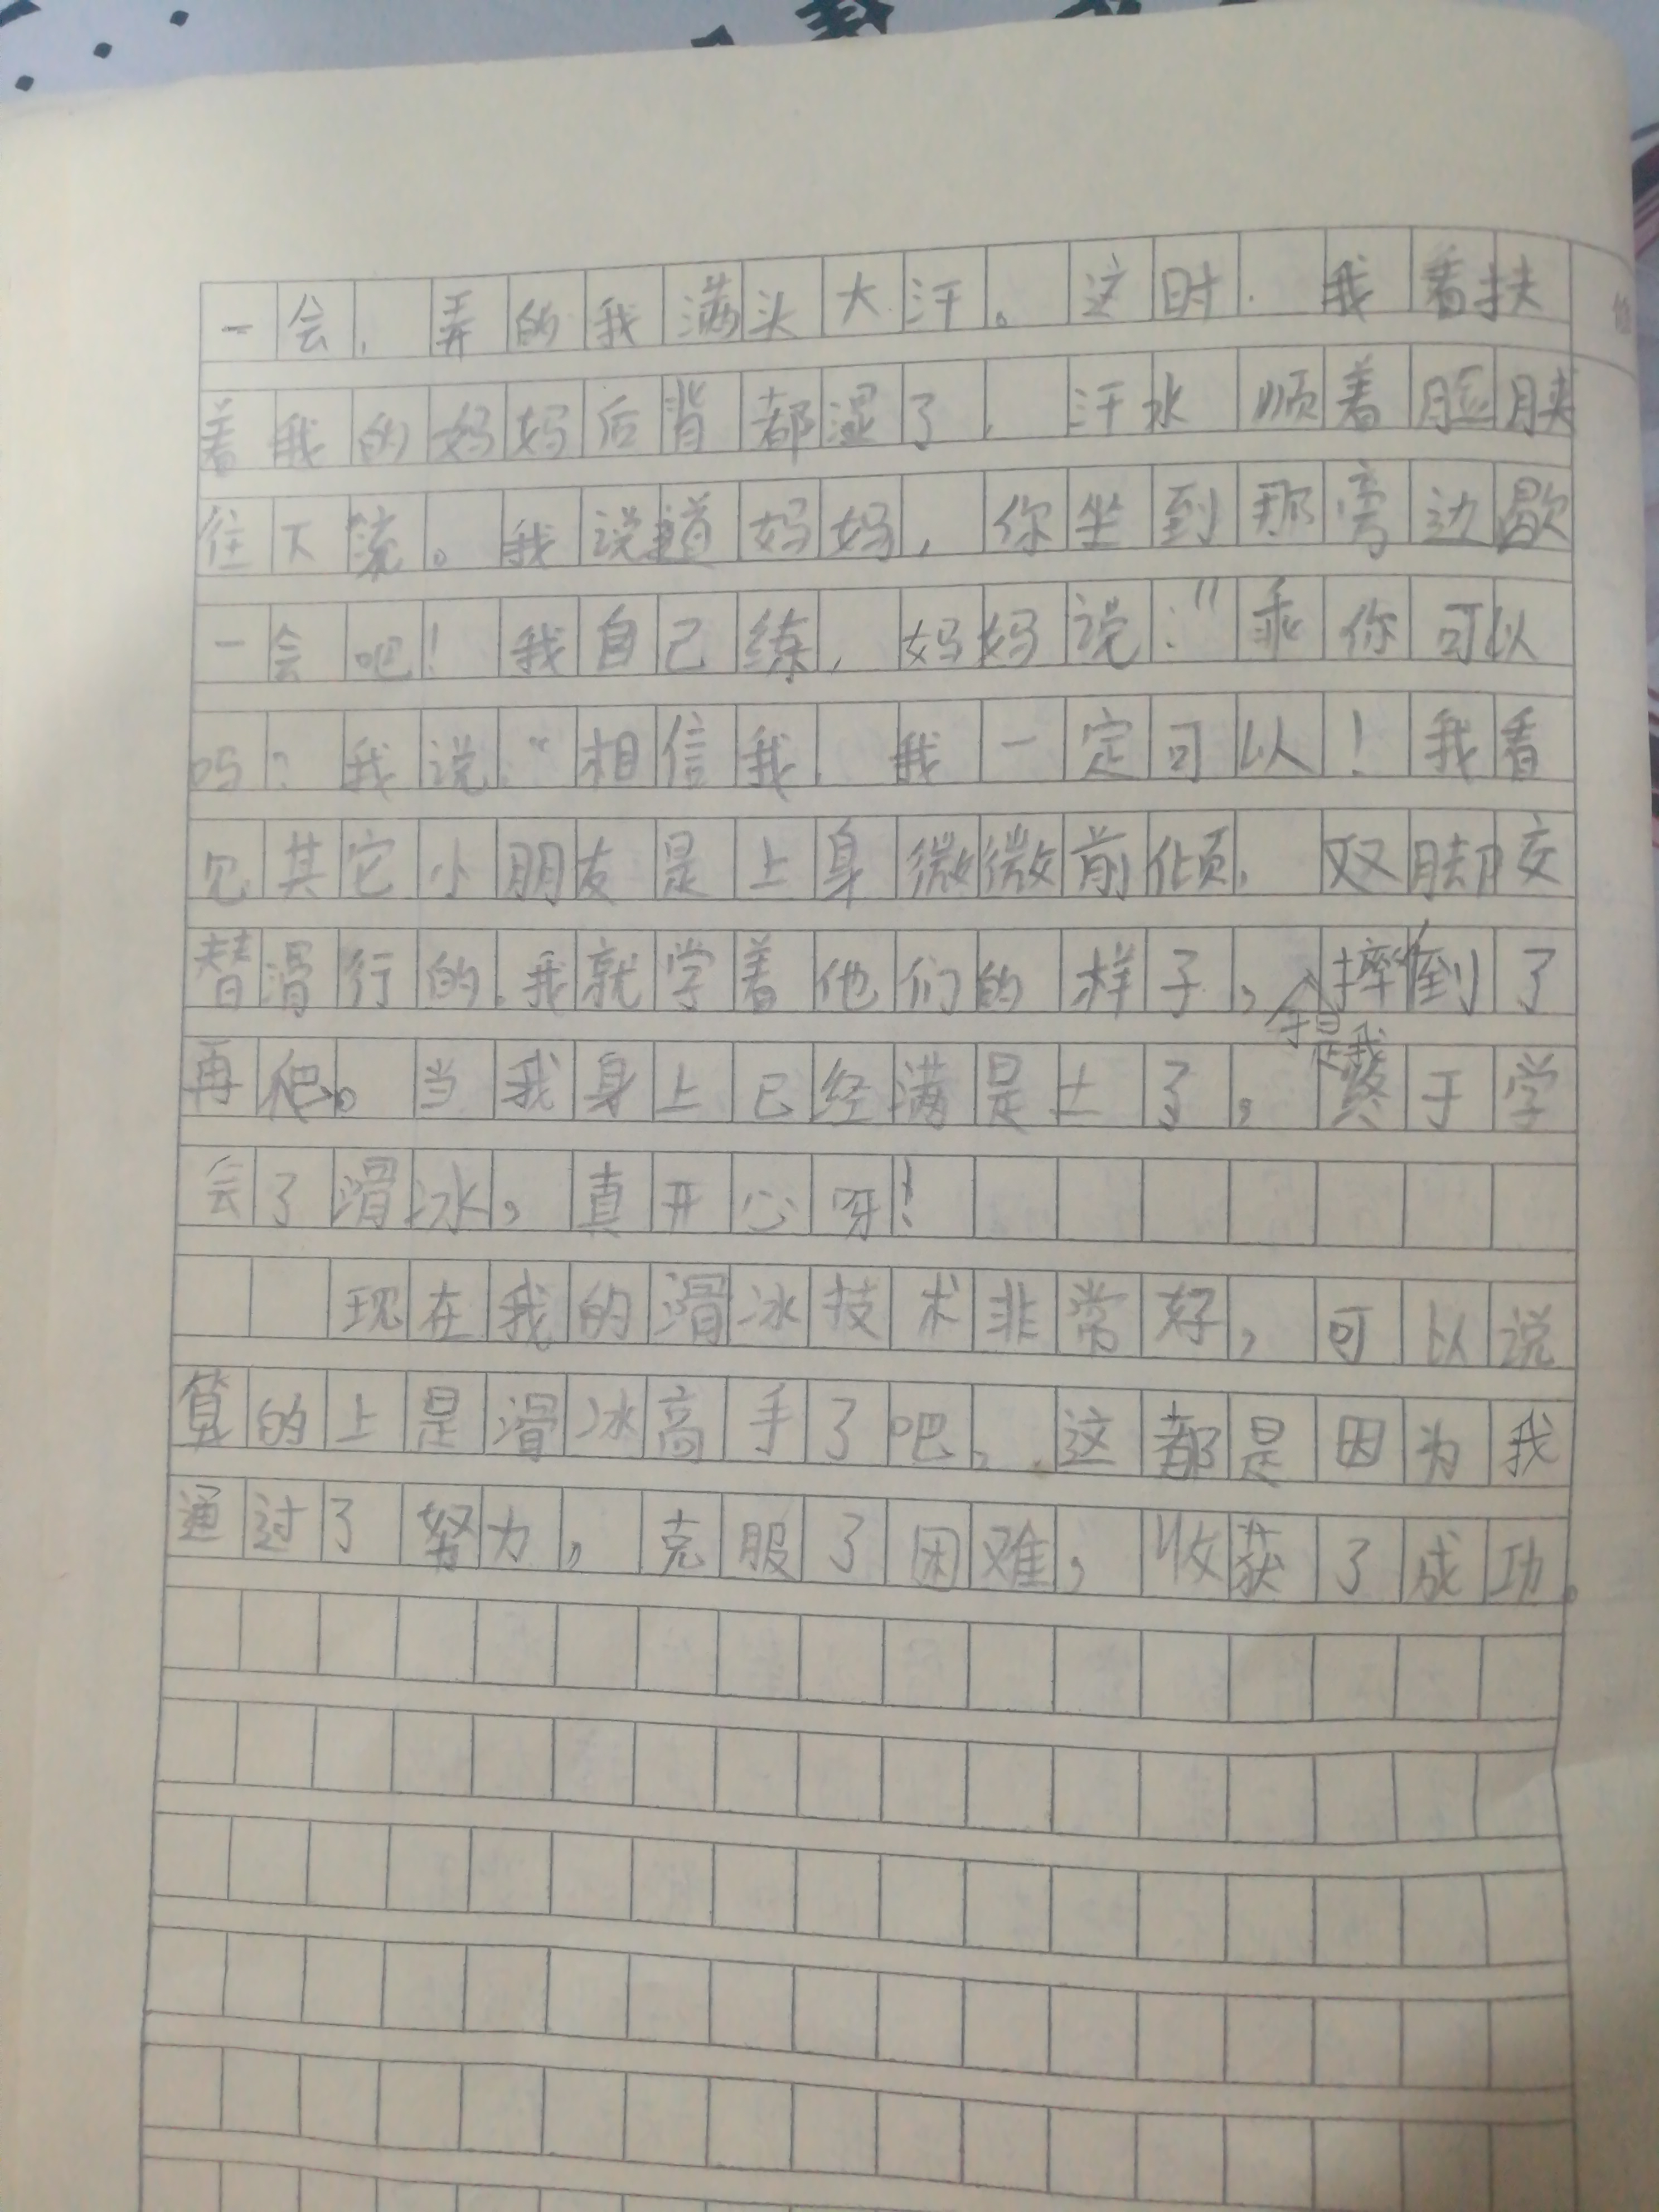 一会，弄的我满头大汗。这时，我看扶
着我的妈妈后背都湿了，汗水顺着脸颊
往下流。我说道妈妈，你坐到那旁边歇
一会吧！我自己练，妈妈说："乖你可以
吗？我说："相信我，我一定可以！我看
见其它小朋友是上身微微前倾，双脚交
替滑行的，我就学着他们的样子，摔倒了
再爬。当我身上已经满是土了，终于学
会了滑冰，真开心呀！
现在我的滑冰技术非常好，可以说
算的上是滑冰高手了吧，这都是因为我
通过了努力，克服了困难，收获了成功。